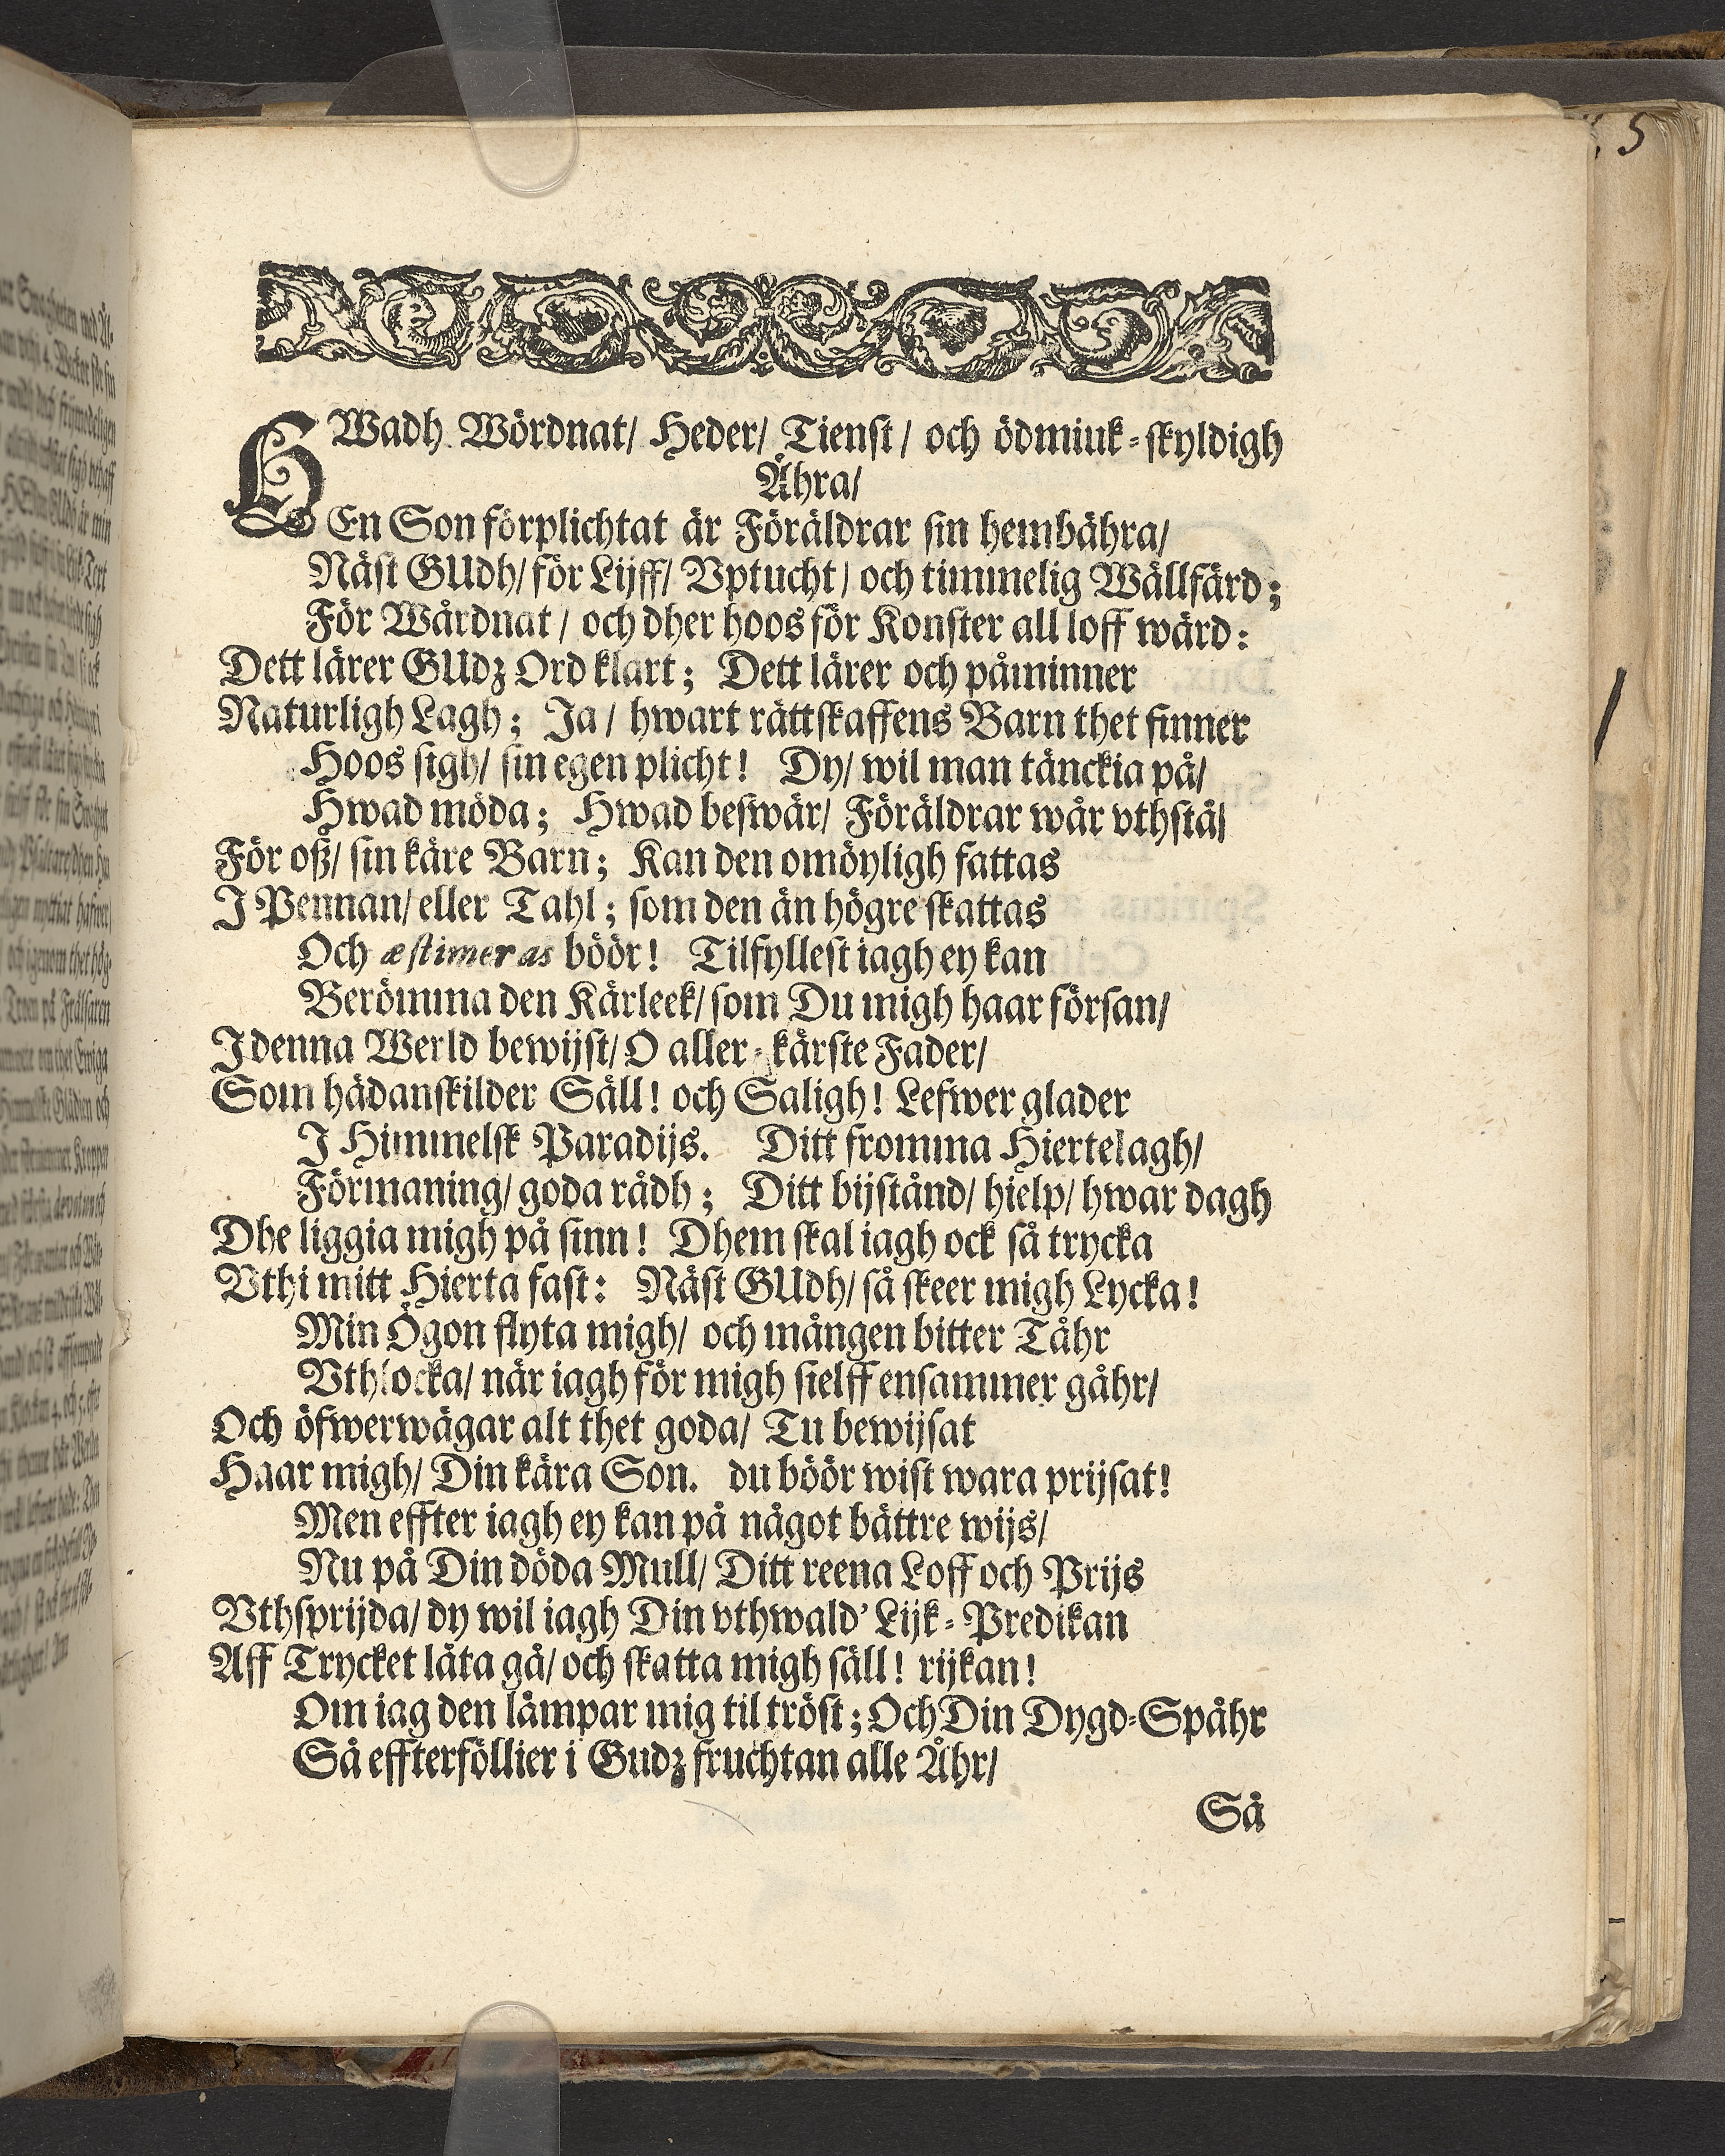 HWadh Wördnat/ Heder/ Tienst/ och ödmiuk-skyldigh
Ähra/
En Son förplichtat är Föräldrar sin hembähra/
Näst GUdh/ för Lijff/ Vptucht/ och timmelig Wällfärd;
För Wårdnat/ och dher hoos för Konster all loff wärd:
Dett lärer GUdz Ord klart; Dett lärer och påminner
Naturligh Lagh; Ja/ hwart rättskaffens Barn thet finner
Hoos sigh/ sin egen plicht! Dy/ wil man tänckia på/
Hwad möda; Hwad beswär/ Föräldrar wår vthstå/
För oß/ sin käre Barn; Kan den omöyligh fattas
J Pennan/ eller Tahl; som den än högre skattas
Och æstimeras böör! Tilfyllest iagh ey kan
Berömma den Kärleek/ som Du migh haar försan/
J denna Werld bewijst/ O aller-kärste Fader/
Som hädanskilder Säll! och Saligh! Lefwer glader
J Himmelsk Paradijs. Ditt fromma Hiertelagh/
Förmaning/ goda rådh; Ditt bijstånd/ hielp/ hwar dagh
Dhe liggia migh på sinn! Dhem skal iagh ock så trycka
Vthi mitt Hierta fast: Näst GUdh/ så skeer migh Lycka!
Min Ögon flyta migh/ och mången bitter Tåhr
Vthlocka/ när iagh för migh sielff ensammer gåhr/
Och öfwerwägar alt thet goda/ Tu bewijsat
Haar migh/ Din kära Son. du böör wist wara prijsat!
Men effter iagh ey kan på något bättre wijs/
Nu på Din döda Mull/ Ditt reena Loff och Prijs
Vthsprijda/ dy wil iagh Din vthwald' Lijk-Predikan
Aff Trycket låta gå/ och skatta migh säll! rijkan!
Om iag den lämpar mig til tröst; Och Din Dygd-Spåhr
Så effterföllier i Gudz fruchtan alle Åhr/
Så
5